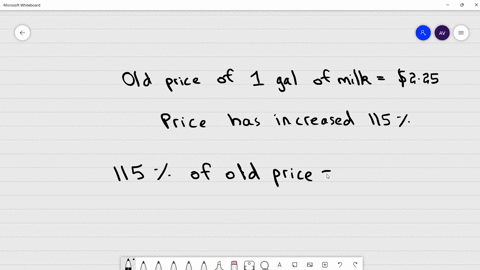 Microsoft Whiteboard
AV
Old price of 1 gal of milk = $2.25
Price has increased 115%
115% of old price =